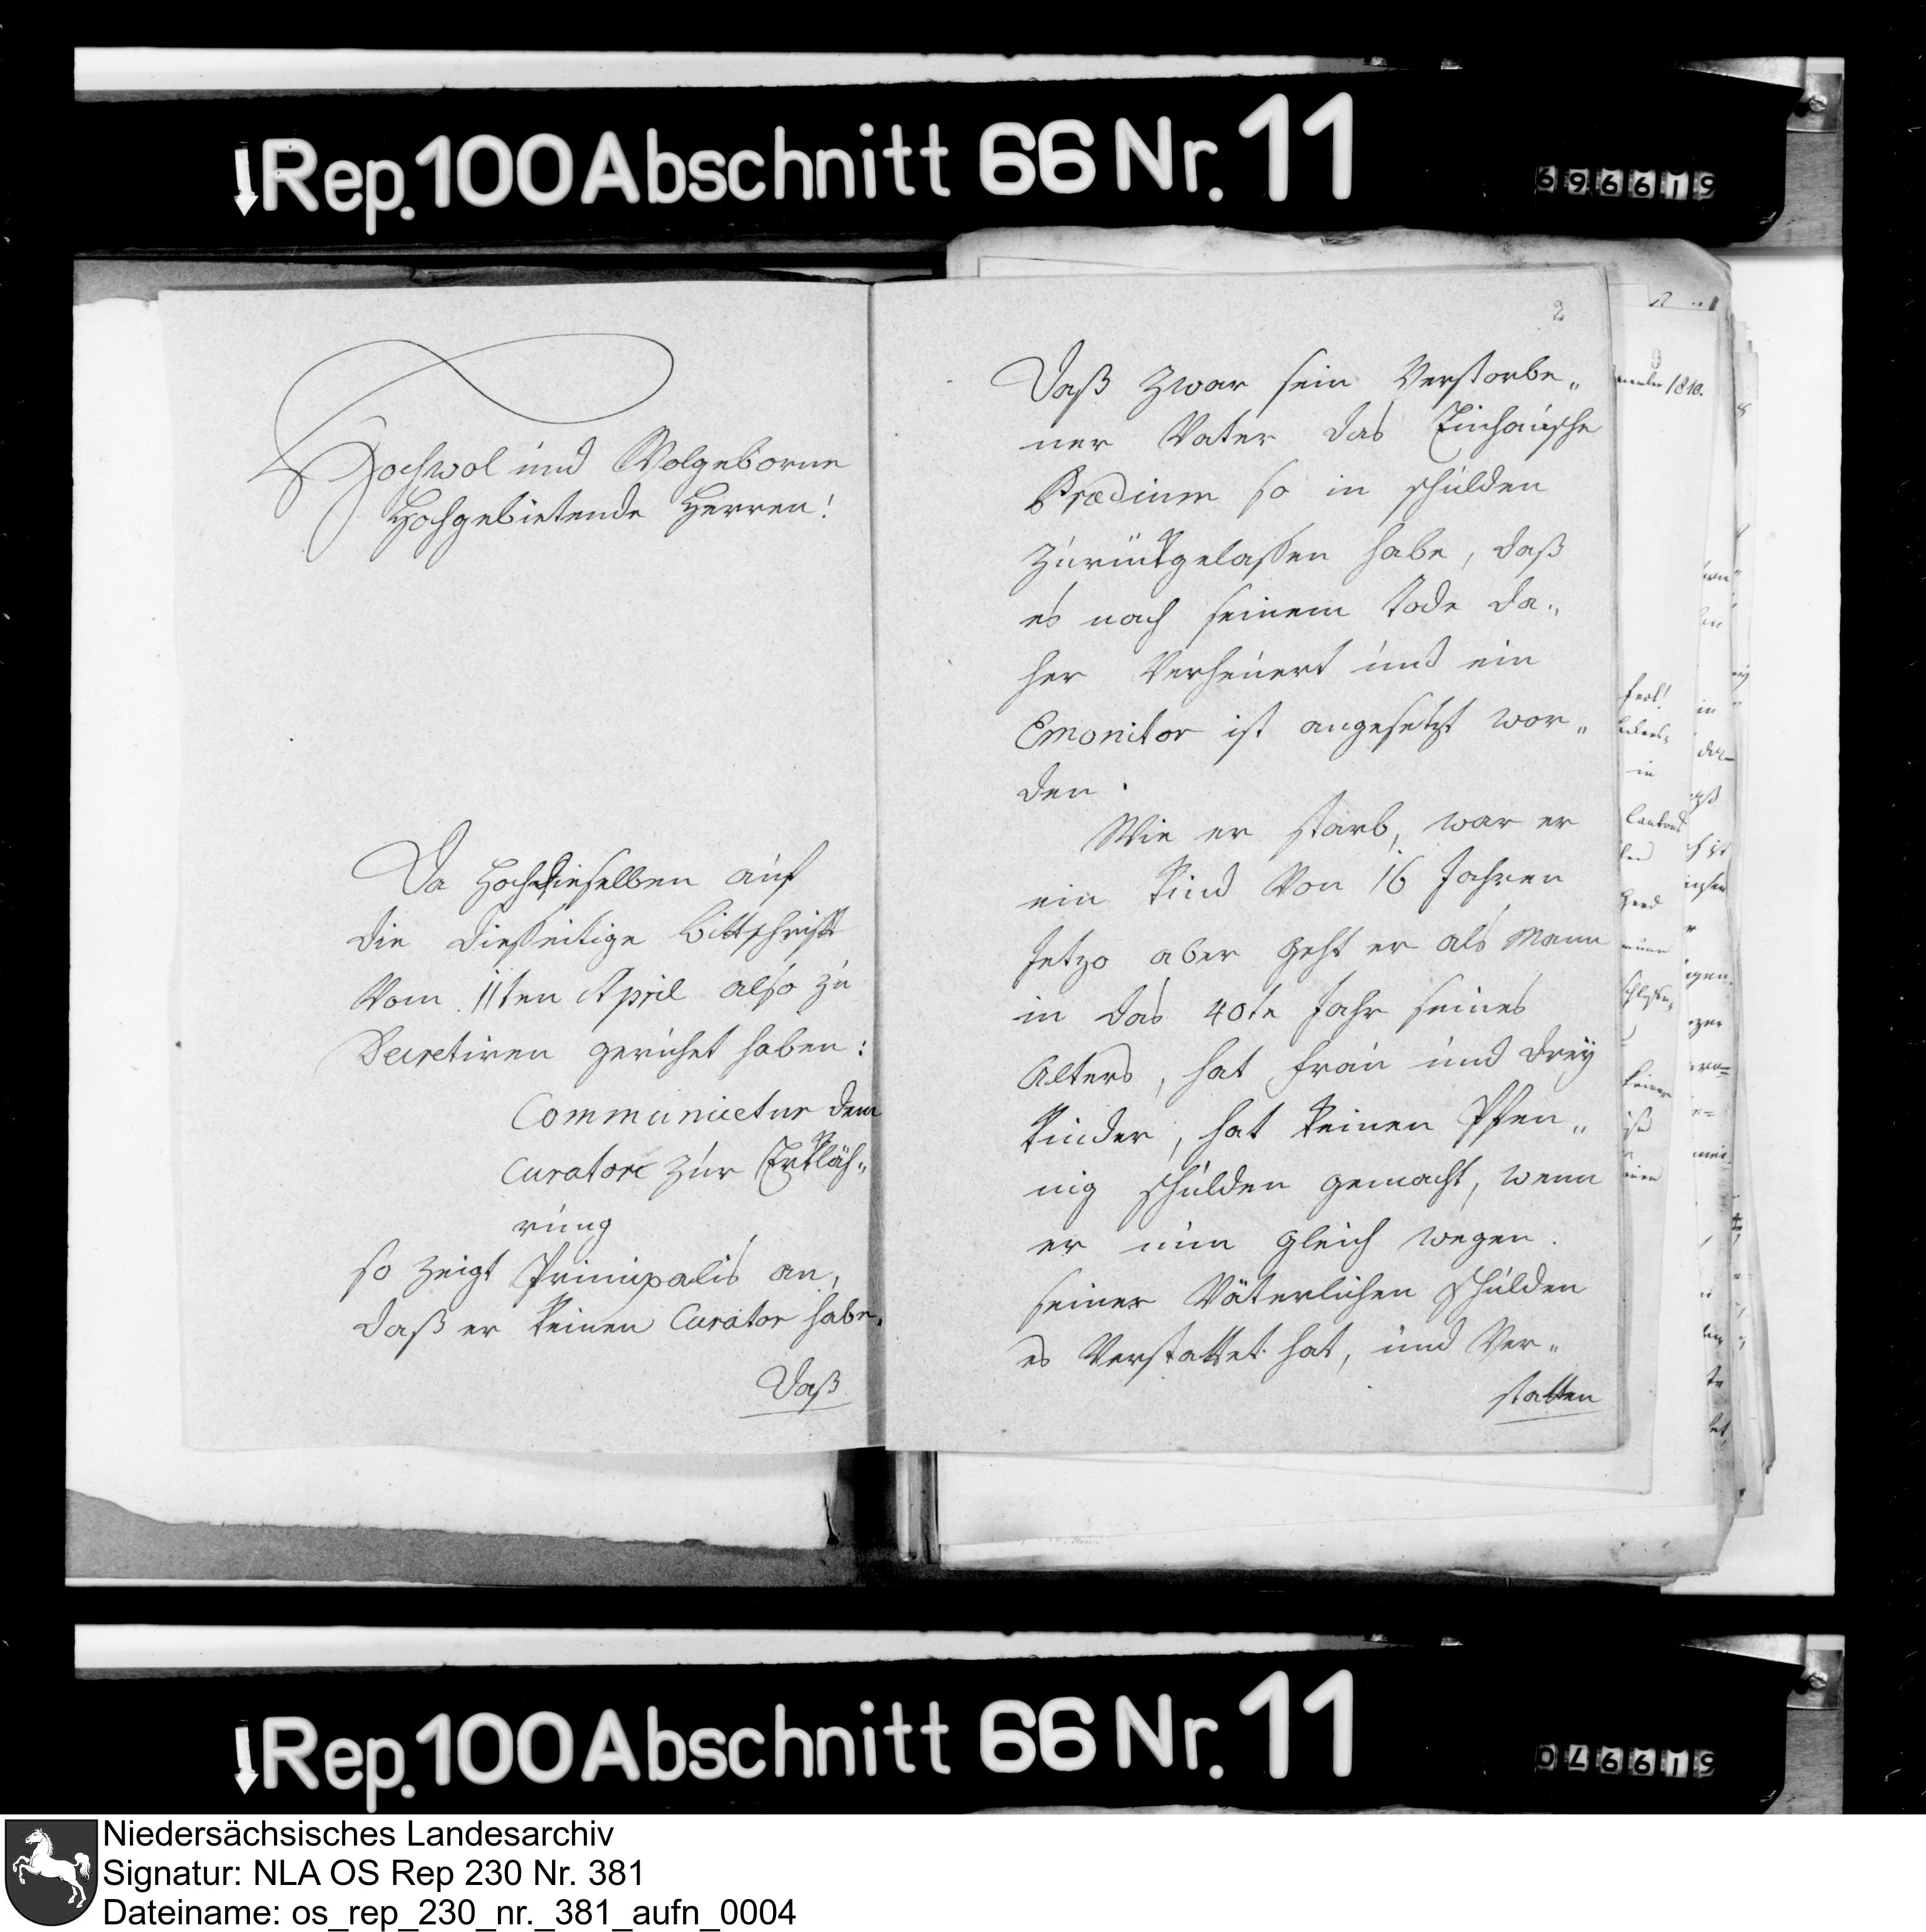 Rep. 100 Abschnitt 66 Nr. 11
619969
Hochwol und Wolgeborne
Hochgebietende Herren!
Da Hochdieselben auf
die diesseitige Bittschrift
Vom 11ten April also zu
Decretiren geruhet haben:
Communicetur dem
Curatori zur Erkläh„
rung
so zeigt Principalis an,
daß er keinen Curator habe.
Daß
2
Daß zwar sein Verstorbe„
ner Vater das
Praedium so in Schulden
zurückgelassen habe, daß
es nach seinem Tode da„
her Verheuert und ein
Emonitor ist angesetzt wor„
den.
Wie er starb, war er
ein Kind Von 16 Jahren
Jetzo aber geht er als Mann
in das 40te Jahr seines
Alters, hat Frau und drey
Kinder, hat keinen Pfen„
nig Schulden gemacht, wenn
er nun gleich wegen
seiner Väterlichen Schulden
es Verstattet hat, und Ver„
statten
9
1810.
Rep. 100 Abschnitt 66 Nr. 11
619970
Niedersächsisches Landesarchiv
Signatur: NLA OS Rep 230 Nr. 381
Dateiname: os_rep_230_nr._381_aufn_0004